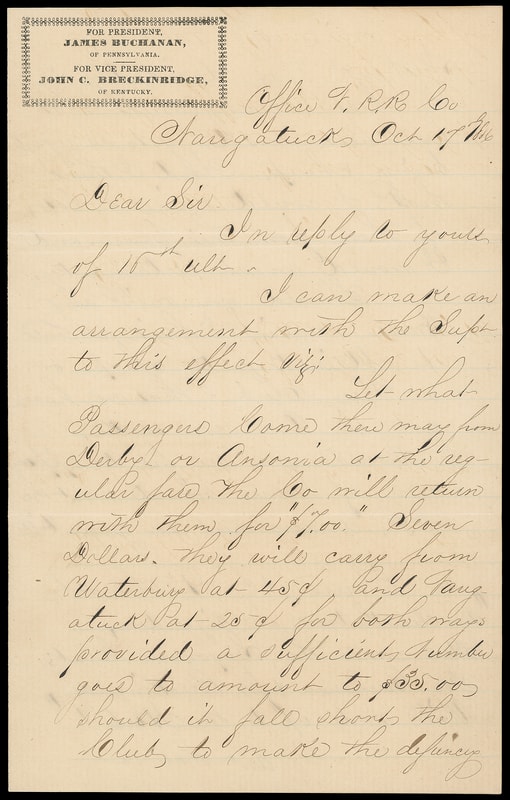 FOR PRESIDENT,
JAMES BUCHANAN,
OF PENNSYLVANIA.
FOR VICE PRESIDENT,
JOHN C. BRECKINRIDGE,
OF KENTUCKY.
Office N. R. R. Co
Naugatuck Oct 17th
Dear Sir
In reply to yours
of 16th ult.
I can make an
arrangement with the Supt.
to this effect Viz:
Let what
Passengers Come there may from
Derby or Ansonia at the reg-
ular fare the Co will return
with them for "$7.00." Seven
Dollars. They will carry from
Waterbury at 45¢ and Naug-
atuck at 25¢ for both ways
provided a sufficient Number
goes to amount to $35.00,
should it fall short the
Club, to make the deficiency